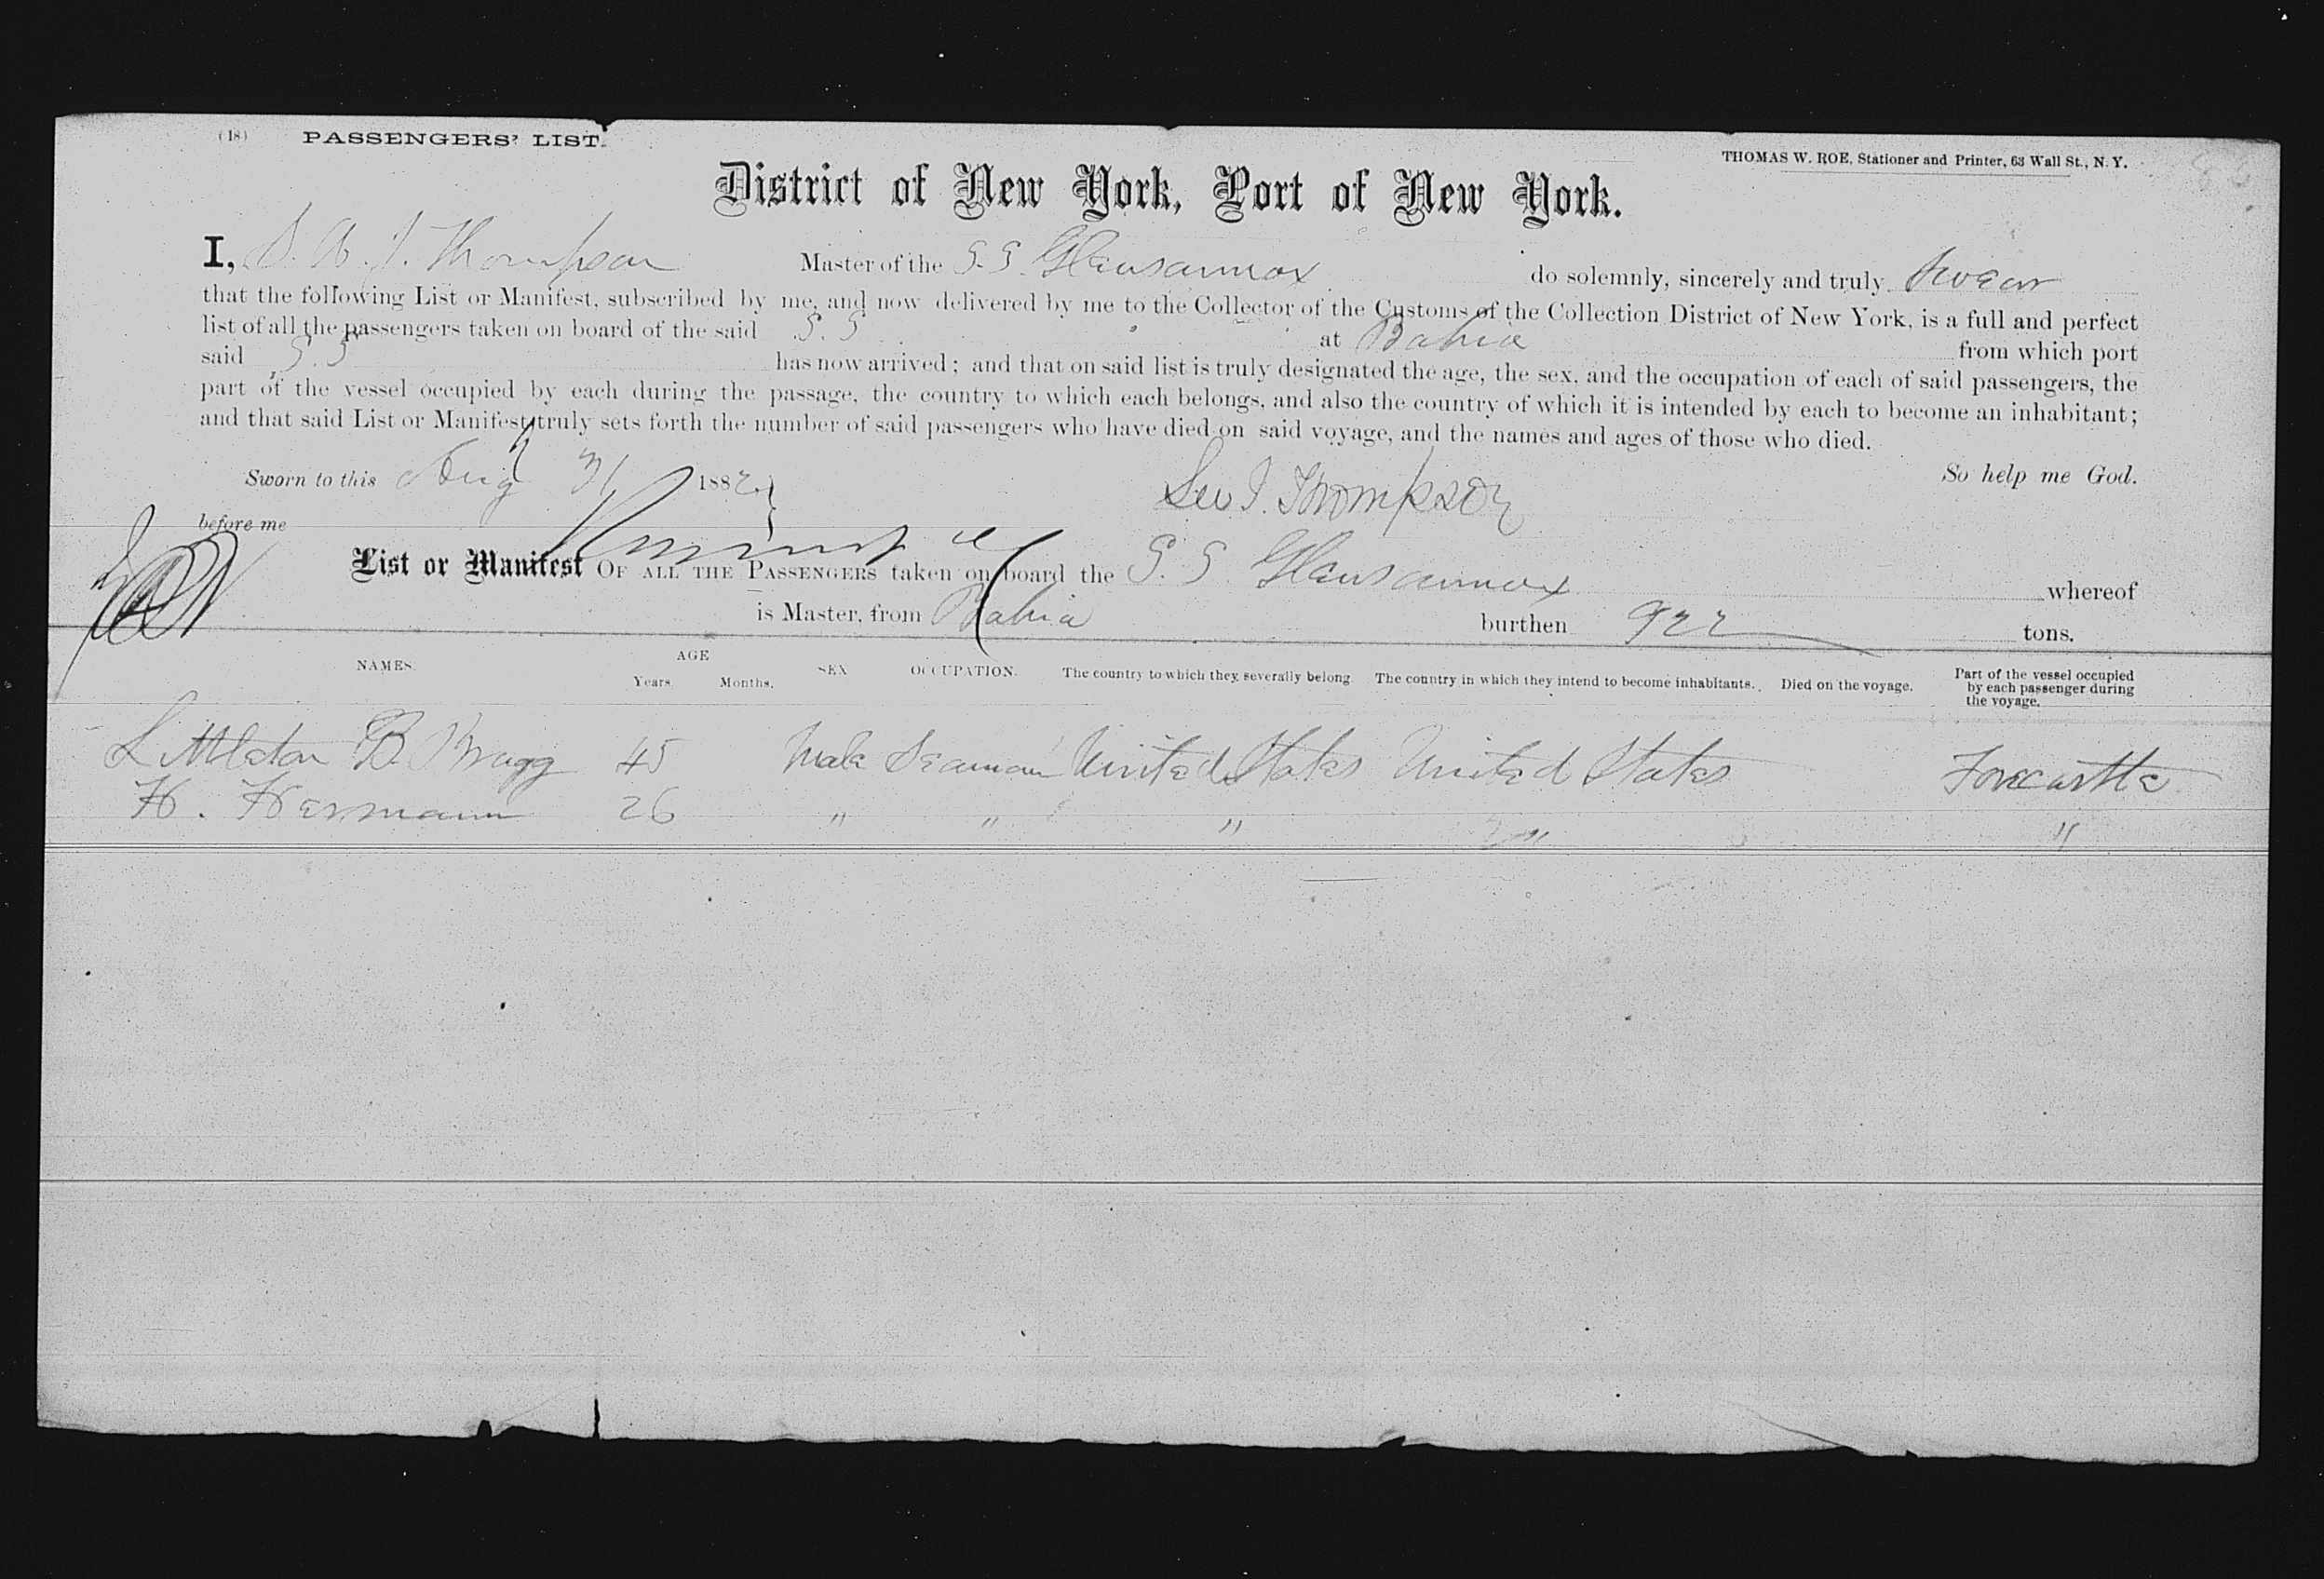 (18) PASSENGERS' LIST.
THOMAS W. ROE, Stationer and Printer, 63 Wall St., N. Y.
District of New York, Port of New York.
I, Thompson Master of the S.S. Glensannox do solemnly, sincerely and truly Swear
that the following List or Manifest, subscribed by me, and now delivered by me to the Collector of the Customs of the Collection District of New York, is a full and perfect
list of all the passengers taken on board of the said S. S at Bahia from which port
said S. S has now arrived; and that on said list is truly designated the age, the sex, and the occupation of each of said passengers, the
part of the vessel occupied by each during the passage, the country to which each belongs, and also the country of which it is intended by each to become an inhabitant;
and that said List or Manifest truly sets forth the number of said passengers who have died on said voyage, and the names and ages of those who died.
So help me God.
Sworn to this Aug 31 1882
Thompson
before me
List or Manifest OF ALL THE PASSENGERS taken on board the S. S Glensannox whereof
is Master, from Bahia burthen 922 tons.
NAMES. AGE Years. Months. SEX OCCUPATION. The country to which they severally belong. The country in which they intend to become inhabitants. Died on the voyage. Part of the vessel occupied by each passenger during the voyage.
Littleton B. Bragg 45 Male Seaman United States United States Forecastle
H. Hermann 26 " " " " "